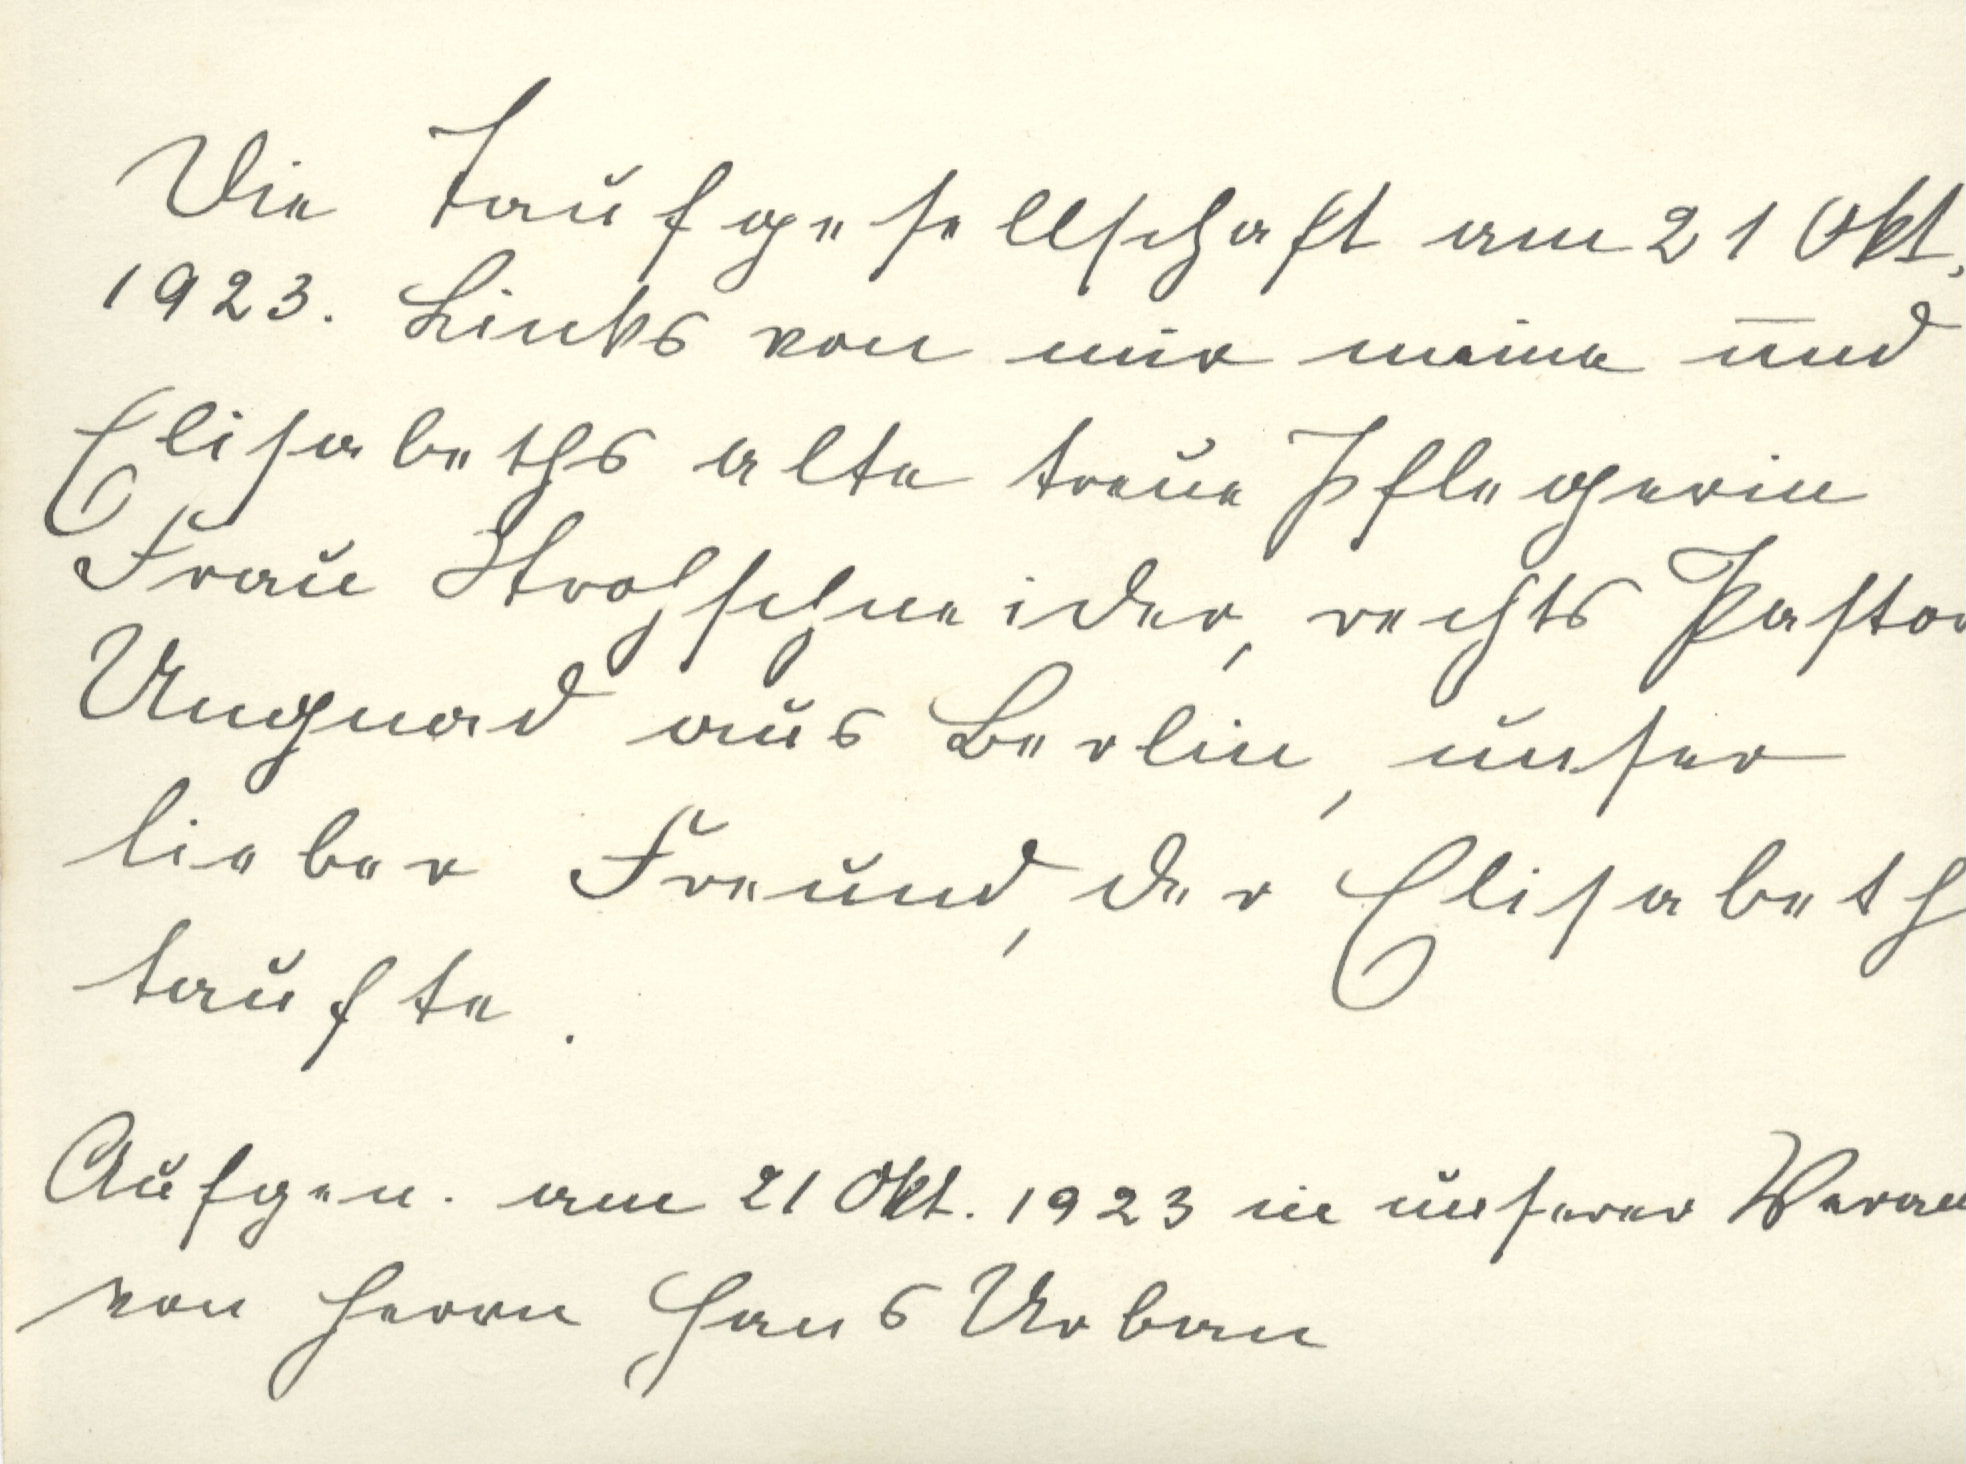 Die Taufgesellschaft am 21 Okt.
1923. Links von mir meine und
Elisabeths alte treue Pflegerin
Frau Strohschneider, rechts Pastor
Ungnad aus Berlin, unser
lieber Freund, der Elisabeth
taufte.
Aufgen. am 21 Okt. 1923 in unserer Veran
von Herrn Hans Urban